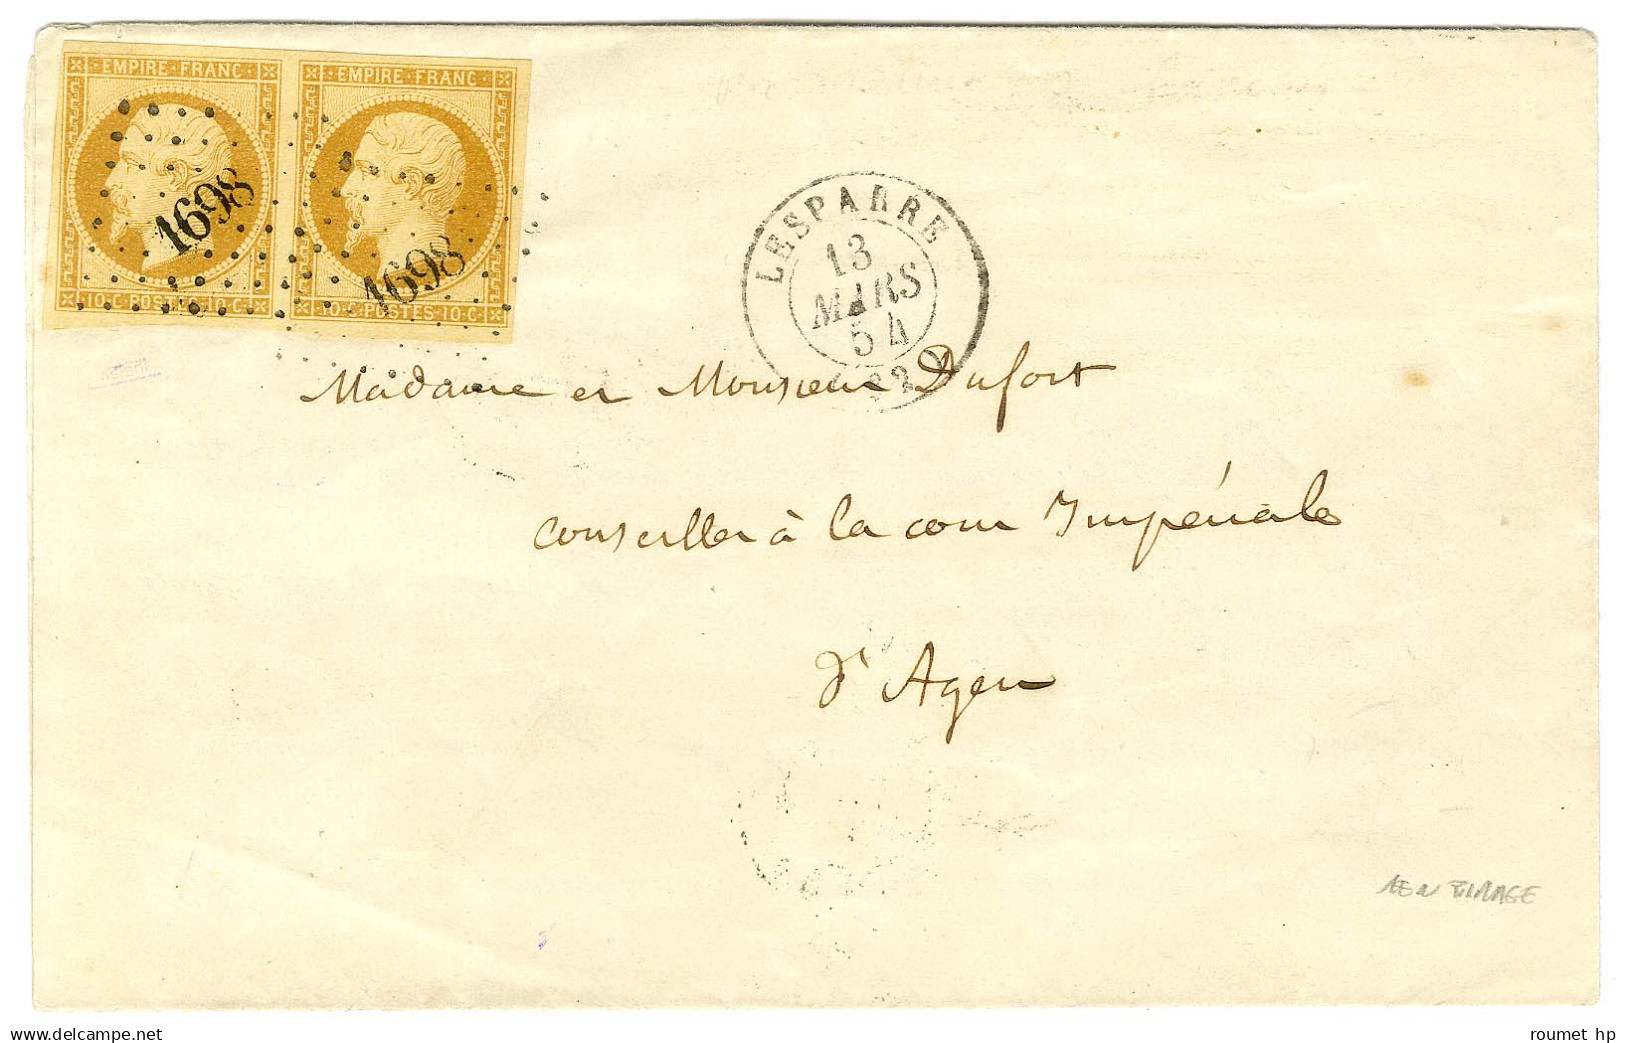 EMPIRE·FRANC· EMPIRE·FRANC·
1698 1698
10·C·POSTES·10·C· 10·C·POSTES·10·C·
LESPARRE
13
MARS
54
Madame et Monsieur Dufort
conseiller à la cour Impériale
d'Agen
www.delcampe.net
roumet hp